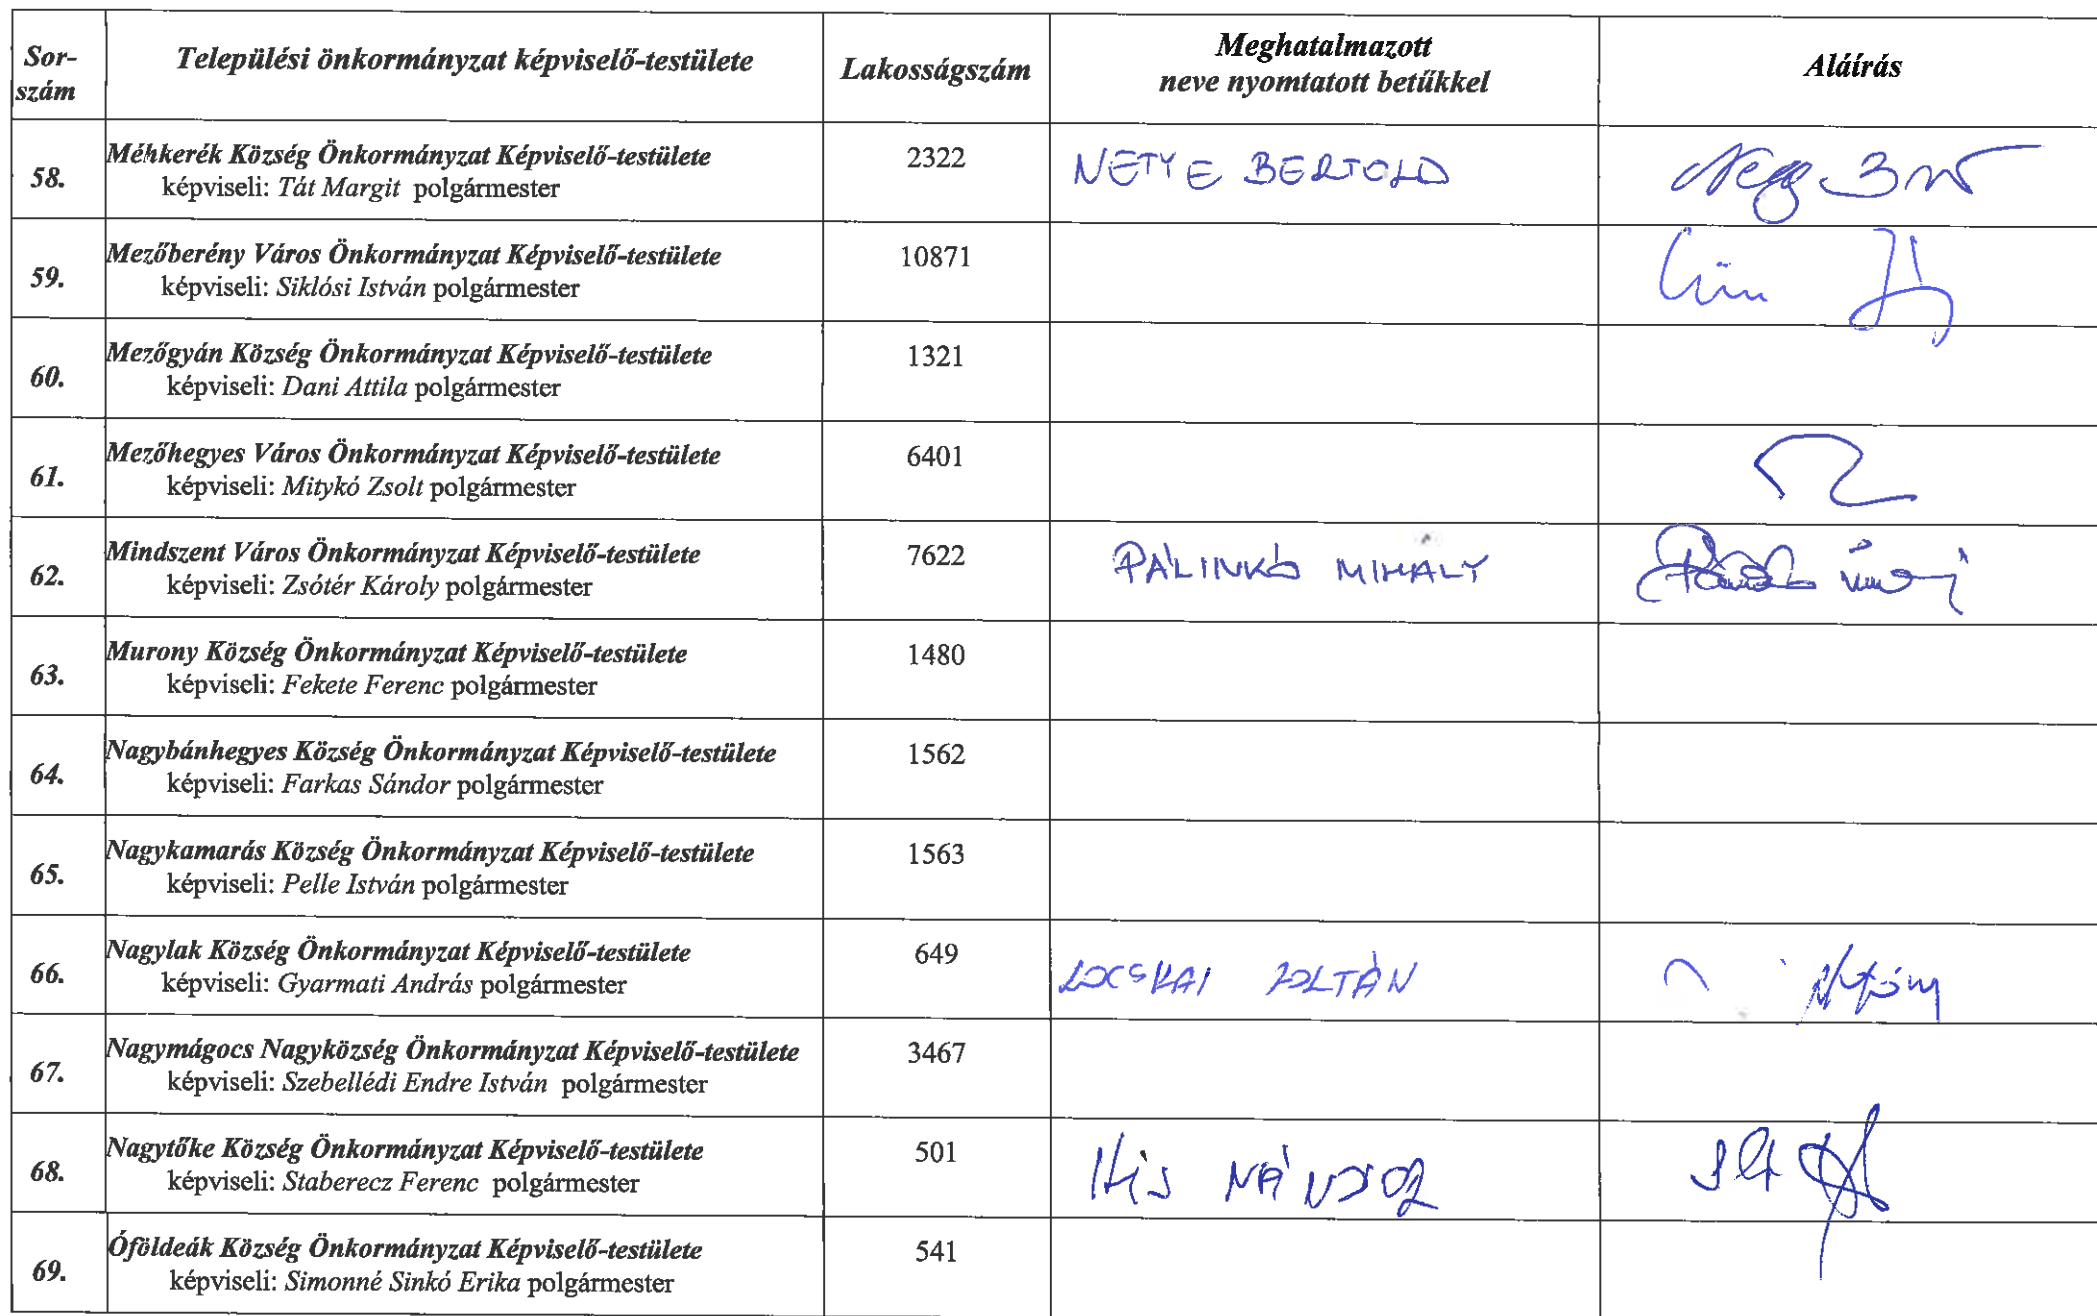 Sor-szám Települési önkormányzat képviselő-testülete Lakosságszám Meghatalmazott neve nyomtatott betűkkel Aláírás
58. Méhkerék Község Önkormányzat Képviselő-testülete 2322 NETYE BERTOLD
képviseli: Tát Margit polgármester
59. Mezőberény Város Önkormányzat Képviselő-testülete 10871
képviseli: Siklósi István polgármester
60. Mezőgyán Község Önkormányzat Képviselő-testülete 1321
képviseli: Dani Attila polgármester
61. Mezőhegyes Város Önkormányzat Képviselő-testülete 6401
képviseli: Mitykó Zsolt polgármester
62. Mindszent Város Önkormányzat Képviselő-testülete 7622 PÁLINKÓ MIHALY
képviseli: Zsótér Károly polgármester
63. Murony Község Önkormányzat Képviselő-testülete 1480
képviseli: Fekete Ferenc polgármester
64. Nagybánhegyes Község Önkormányzat Képviselő-testülete 1562
képviseli: Farkas Sándor polgármester
65. Nagykamarás Község Önkormányzat Képviselő-testülete 1563
képviseli: Pelle István polgármester
66. Nagylak Község Önkormányzat Képviselő-testülete 649 LOCSKAI ZOLTÁN
képviseli: Gyarmati András polgármester
67. Nagymágocs Nagyközség Önkormányzat Képviselő-testülete 3467
képviseli: Szebellédi Endre István polgármester
68. Nagytőke Község Önkormányzat Képviselő-testülete 501 Kis NÁNDOR
képviseli: Staberecz Ferenc polgármester
69. Óföldeák Község Önkormányzat Képviselő-testülete 541
képviseli: Simonné Sinkó Erika polgármester